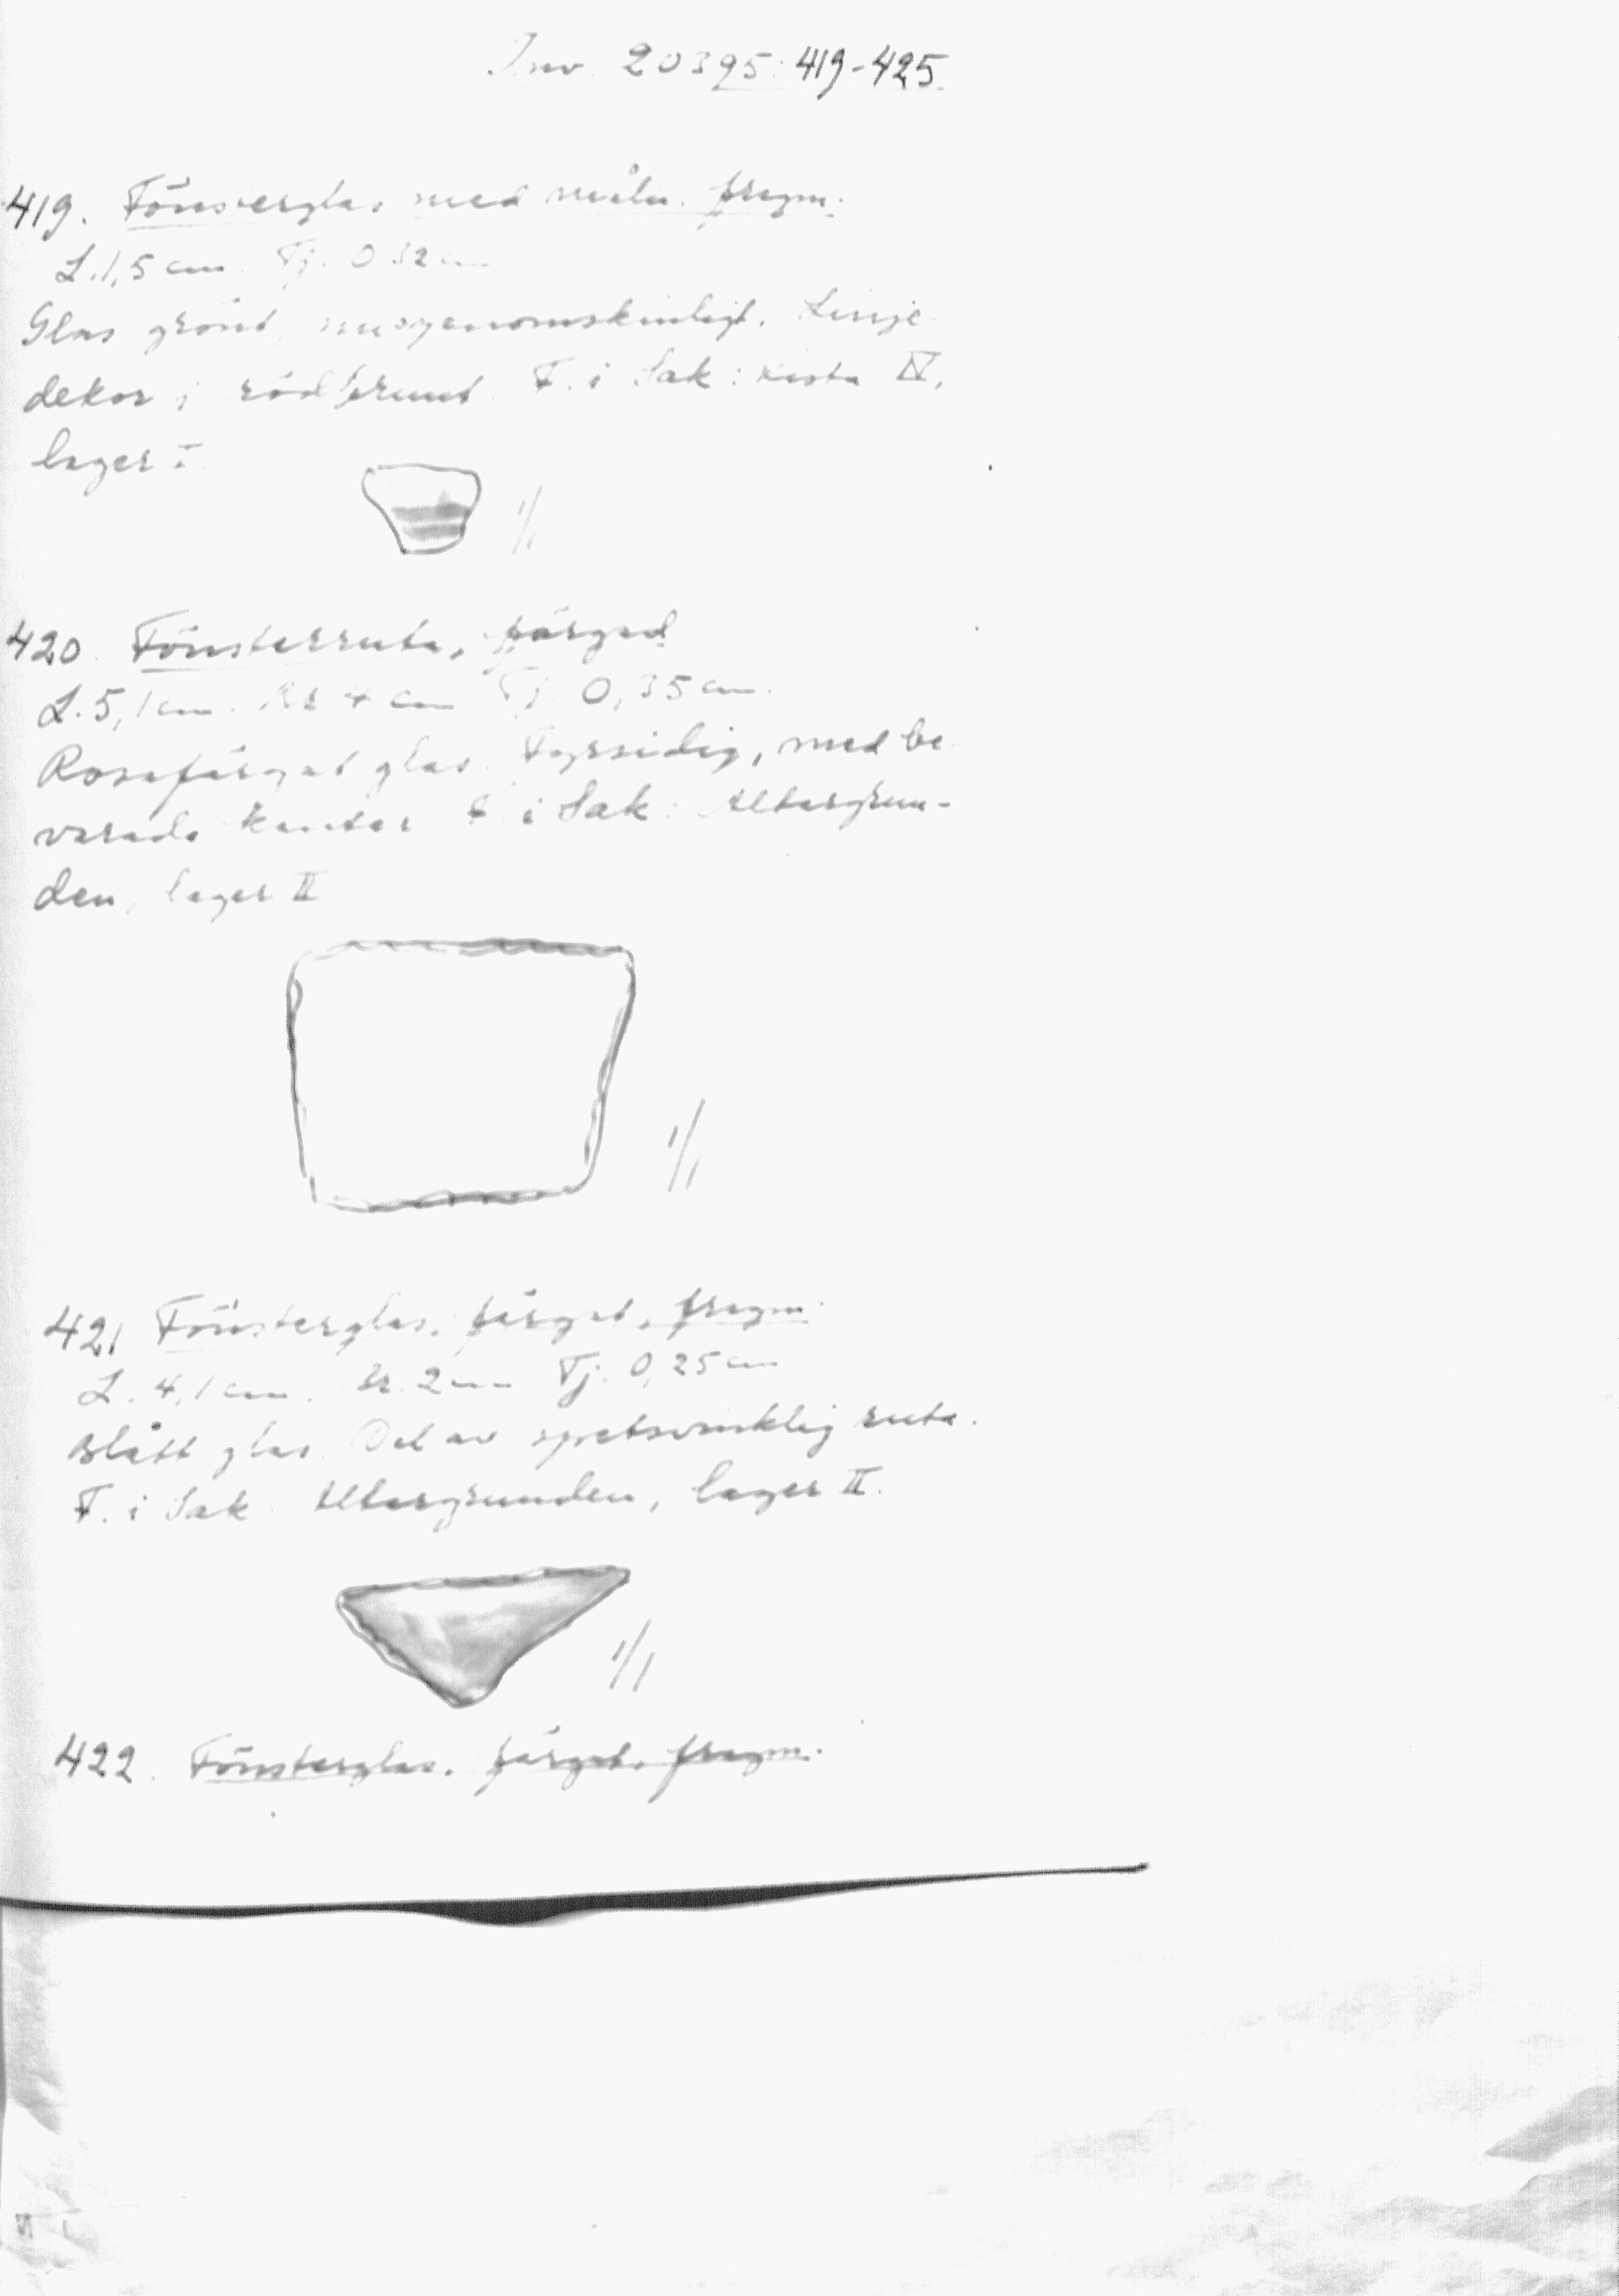 Inv. 20395: 419-425.
419. Fönsterglas med måln. fragm.
L. 1,5 cm. Tj. 0,32 cm
Glas grönt, ogenomskinligt. Linje-
dekor i rödbrunt. F. i Sak: kista IV,
lager I.
1/1
420. Fönsterruta, färgad
L. 5,1 cm. Br 4 cm Tj. 0,35 cm.
Rosafärgat glas. Fyrsidig, med be-
varade kanter F i Sak: Altargrun-
den, lager II
1/1
421 Fönsterglas, färgat, fragm.
L. 4,1 cm. Br. 2 cm Tj. 0,25 cm
Blått glas. Del av spetsvinklig ruta.
F. i Sak. Altargrunden, lager II.
1/1
422. Fönsterglas, färgat, fragm.